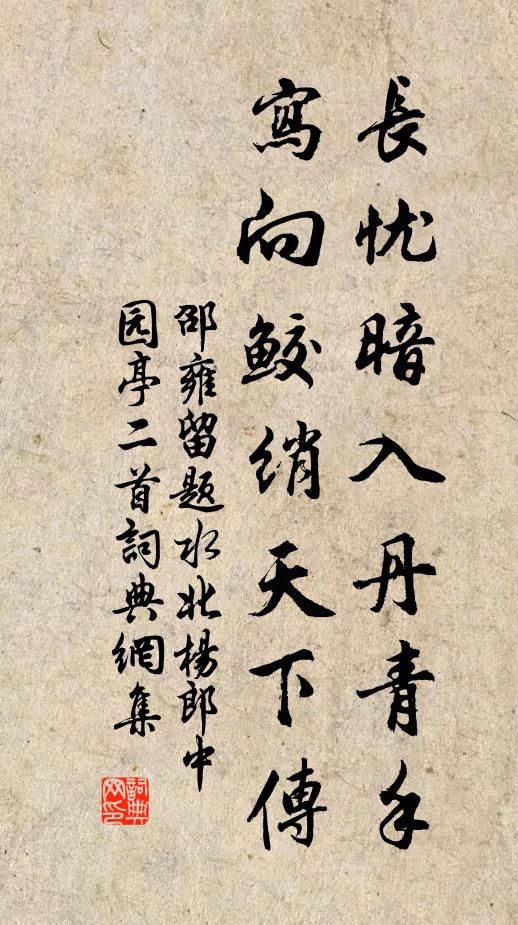 長忧暗入丹青手
寫向鮫綃天下傳
邵雍留題水北楊郎中
园亭二首詞典網集
詞典
网印